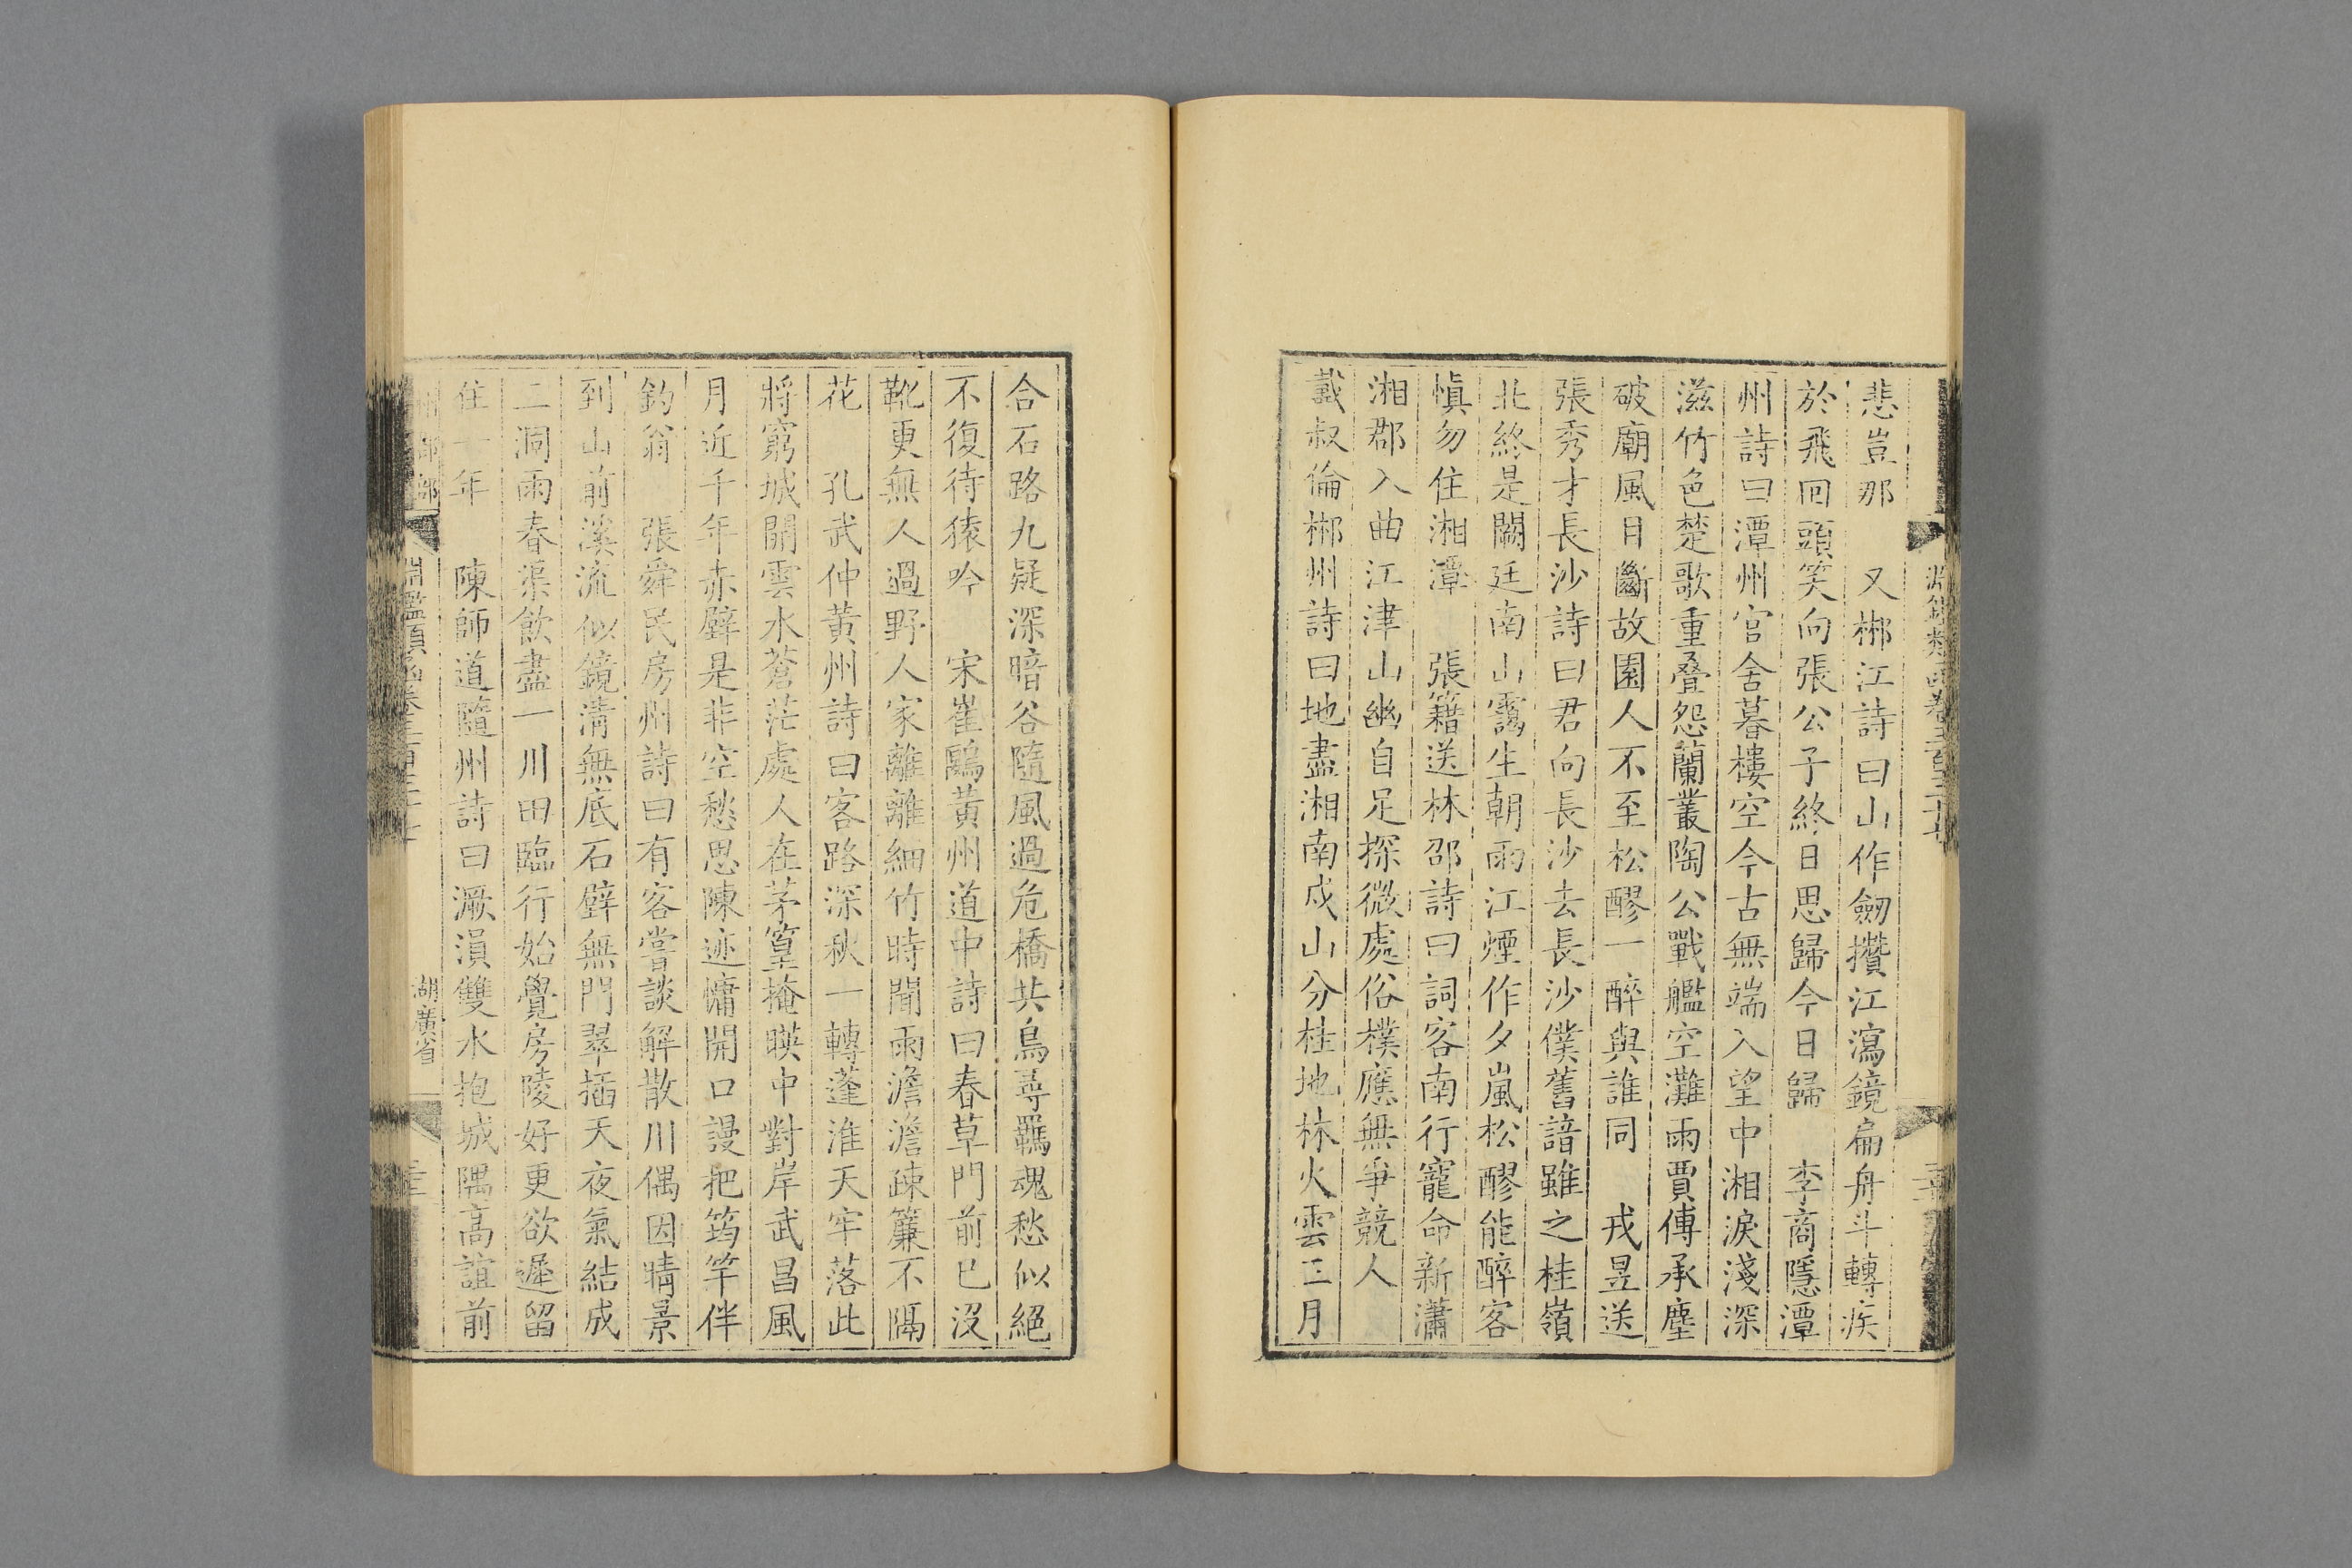 悲豈那　又郴江詩曰山作劒攢江瀉鏡扁舟斗轉疾
於飛囘頭笑向張公子終日思歸今日歸　李商隱潭
州詩曰潭州官舍暮樓空今古無端入望中湘淚淺深
滋竹色楚歌重叠怨蘭叢陶公戰艦空灘雨賈傅承塵
破廟風目斷故園人不至松醪一醉與誰同　戎昱送
張秀才長沙詩曰君向長沙去長沙僕舊諳雖之桂嶺
北終是闕廷南山靄生朝雨江煙作夕嵐松醪能醉客
愼勿住湘潭　張籍送林邵詩曰詞客南行寵命新瀟
湘郡入曲江津山幽自足探微處俗樸應無爭競人
戴叔倫郴州詩曰地盡湘南戍山分桂地林火雲三月
合石路九疑深暗谷隨風過危橋共鳥尋羈魂愁似絕
不復待猿吟　宋崔鷗黃州道中詩曰春草門前已沒
靴更無人過野人家離離細竹時聞雨澹澹疎簾不隔
花　孔武仲黃州詩曰客路深秋一轉蓬淮天牢落此
將窮城開雲水蒼茫處人在茅篁掩暎中對岸武昌風
月近千年赤壁是非空愁思陳迹慵開口謾把筠竿伴
釣翁　張舜民房州詩曰有客嘗談解散川偶因晴景
到山前溪流似鏡淸無底石壁無門翠插天夜氣結成
二洞雨春渠飮盡一川田臨行始覺房陵好更欲遲留
住一年　陳師道隨州詩曰㵐溳雙水抱城隅高誼前
湖廣省